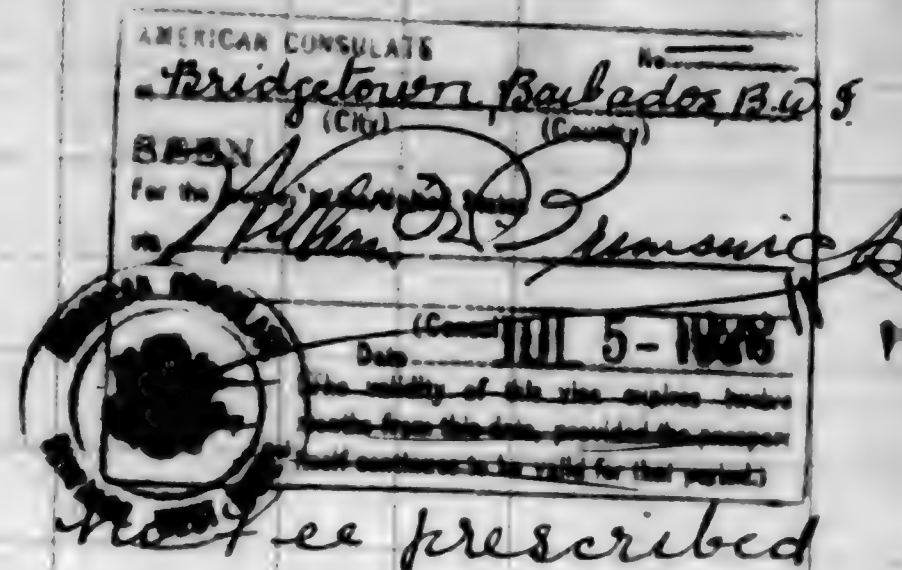 AMERICAN CONSULATE
No.
at Bridgetown, Barbados B.W.I.
(City) (Country)
SEEN
For the
via
(Consul
Date JUL 5-
(The validity of this visa expires twelve
months from this date, provided the passport
itself continues to be valid for that period.)
No fee prescribed